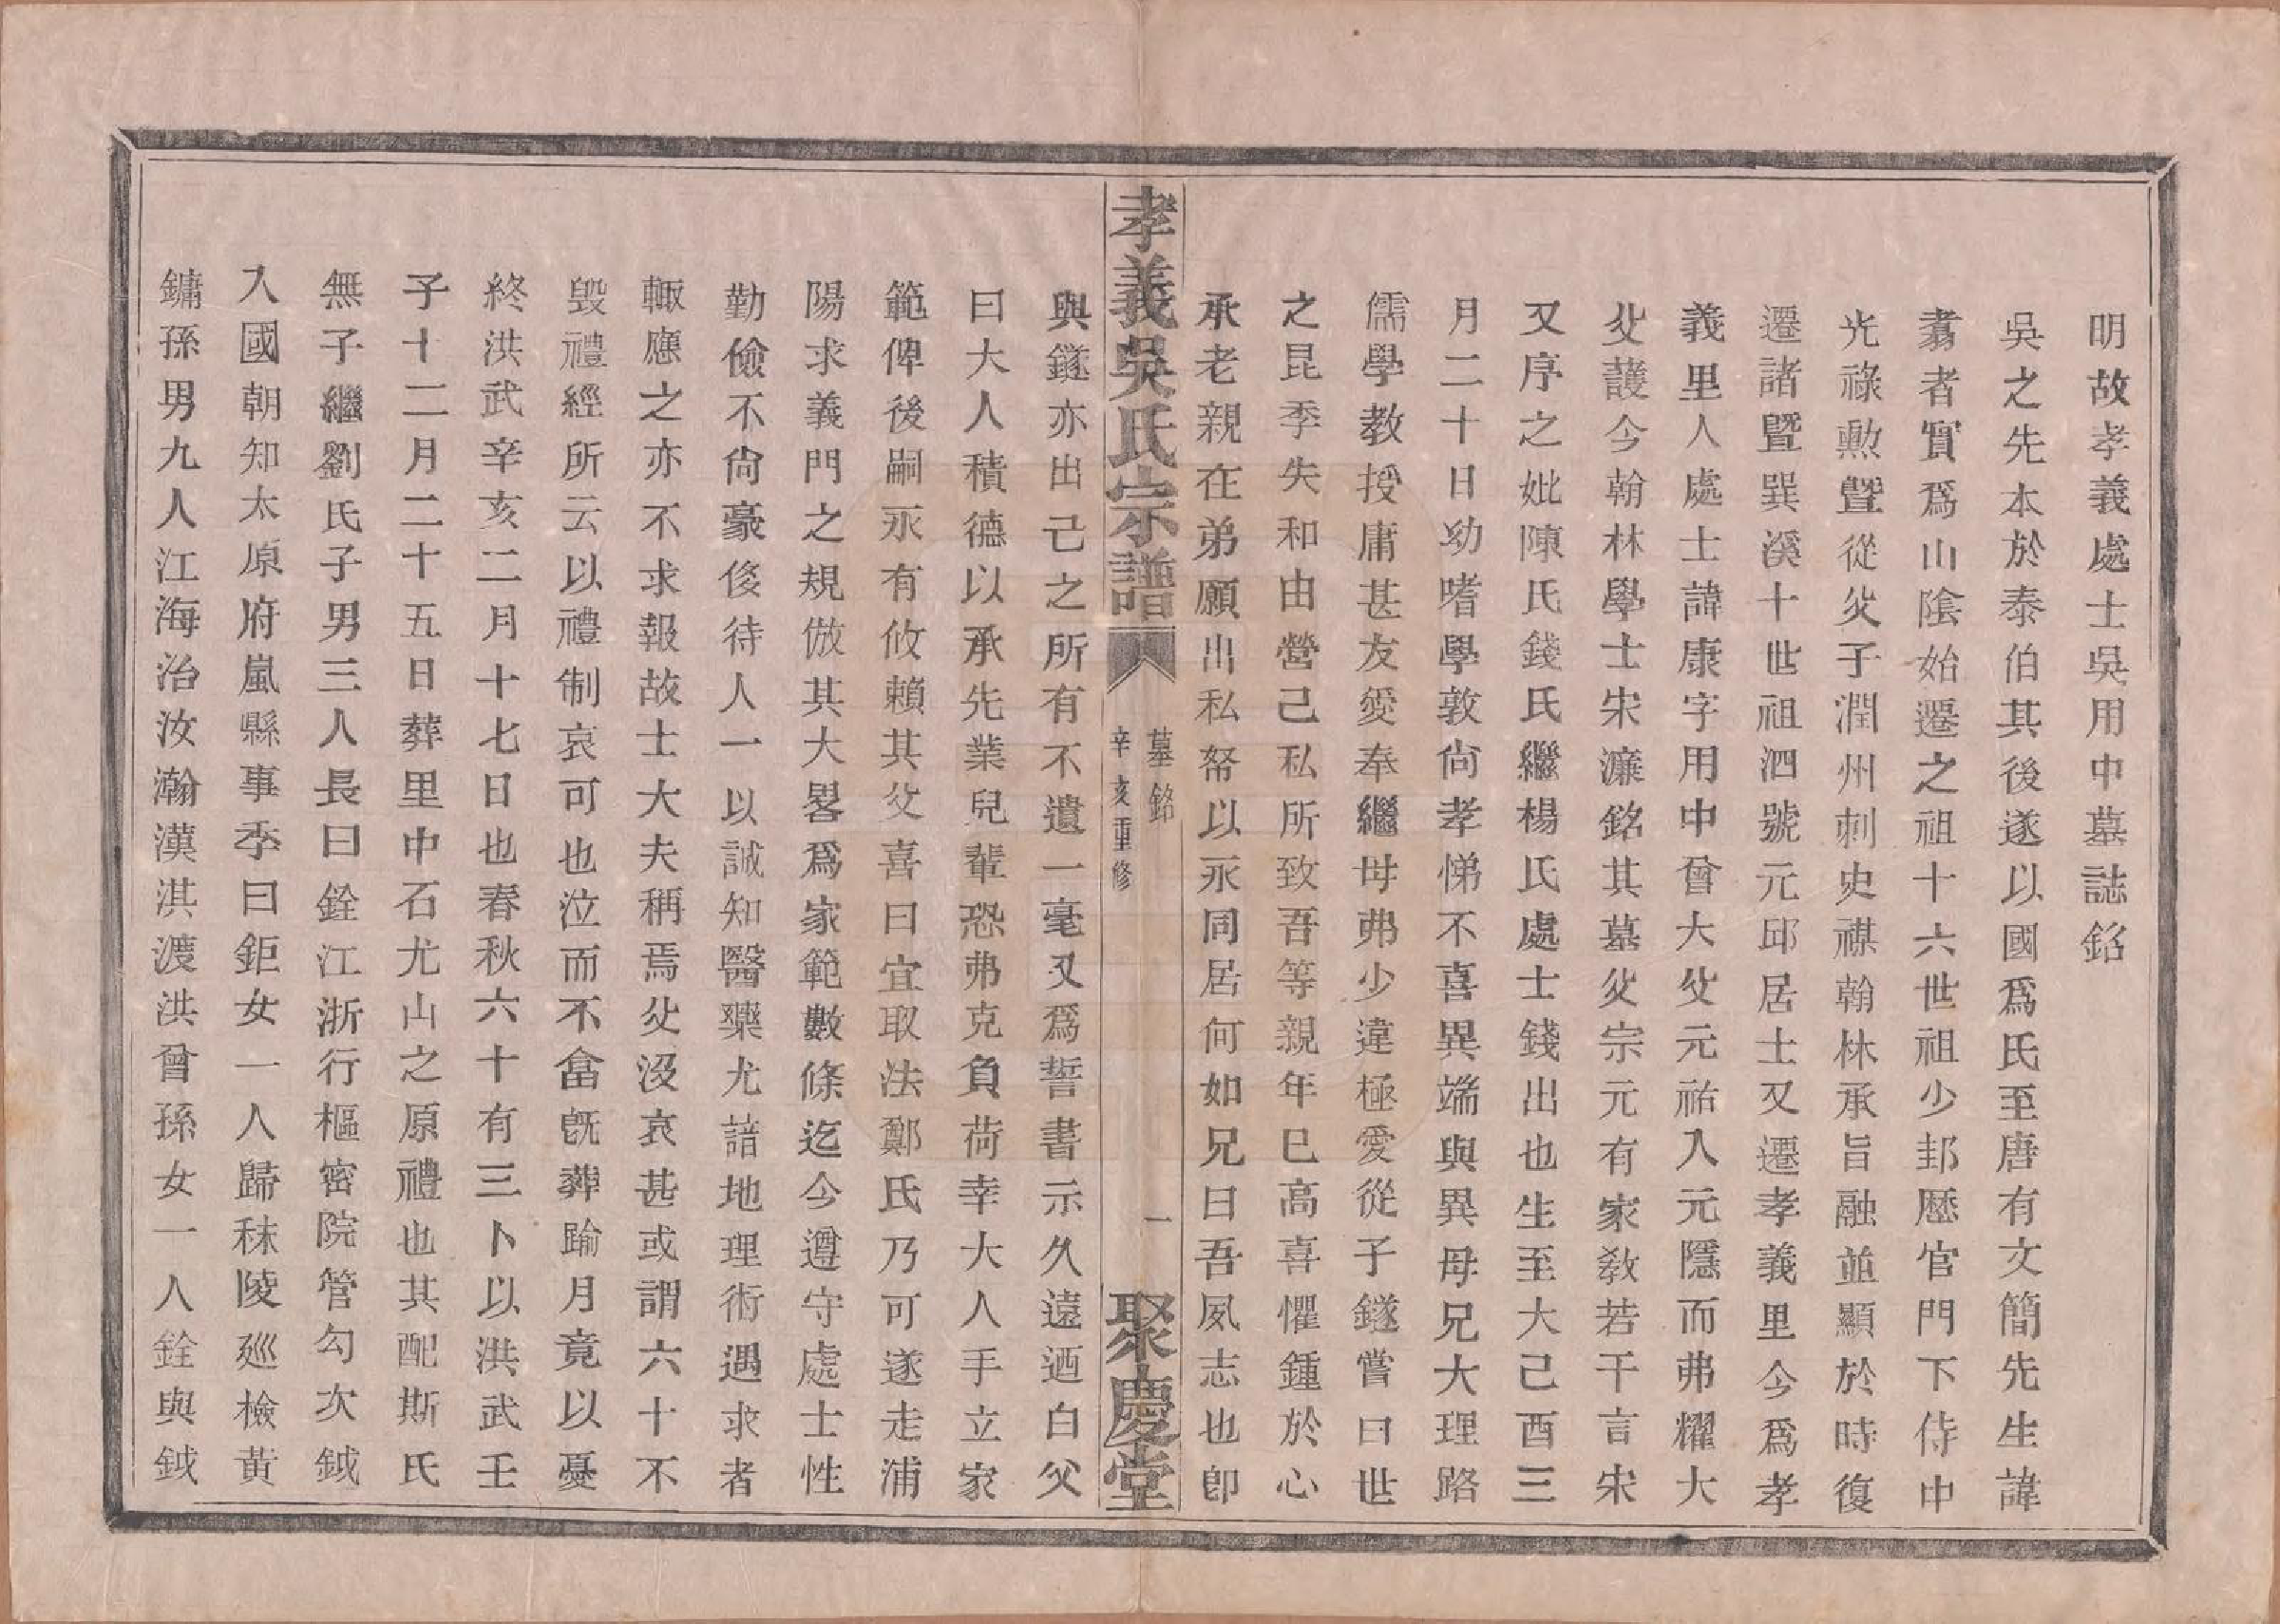 明故孝義處士吳用中墓誌銘
吳之先本於泰伯其後遂以國爲氏至唐有文簡先生諱
翥者實爲山陰始遷之祖十六世祖少邽歷官門下侍中
光祿勲曁從父子潤州刺史禖翰林承旨融並顯於時復
遷諸暨巽溪十世祖泗號元邱居士又遷孝義里今爲孝
義里人處士諱康字用中曾大父元祐入元元隱而弗耀大
父護今翰林學士宋濂銘其墓父宗元有家敎若干言宋
又序之妣陳氏錢氏繼楊氏處士錢出也生至大己酉三
月二十日幼嗜學敦尙孝悌不喜異端與異母兄大理路
儒學教授庸甚友愛奉繼母弗少違極愛從子鐩嘗曰世
之昆季失和由營己私所致吾等親年巳高喜懼鍾於心
承老親在弟願出私帑以永同居何如兄曰吾夙志也卽
孝義吳氏宗譜
墓銘
辛亥重修
一
聚慶堂
與鐩亦出己之所有不遺一毫又爲誓書示久遠迺白父
曰大人積德以承先業兒輩恐弗克負荷幸大人手立家
範俾後嗣永有攸賴其父喜曰宜取法鄭氏乃可遂走浦
陽求義門之規倣其大畧爲家範數條迄今遵守處士性
勤儉不尙豪侈待人一以誠知醫藥尤諳地理術遇求者
輙應之亦不求報故士大夫稱焉父沒哀甚或謂六十不
毁禮經所云以禮制哀可也泣而不畣旣葬踰月竟以憂
終洪武辛亥二月十七日也春秋六十有三卜以洪武壬
子十二月二十五日葬里中石尤山之原禮也其配斯氏
無子繼劉氏子男三人長曰銓江浙行樞密院管勾次鉞
入國朝知太原府嵐縣事季曰鉅女一人歸秣陵廵檢黃
鏞孫男九人江海治汝瀚漢淇渡洪曾孫女一人銓與鉞